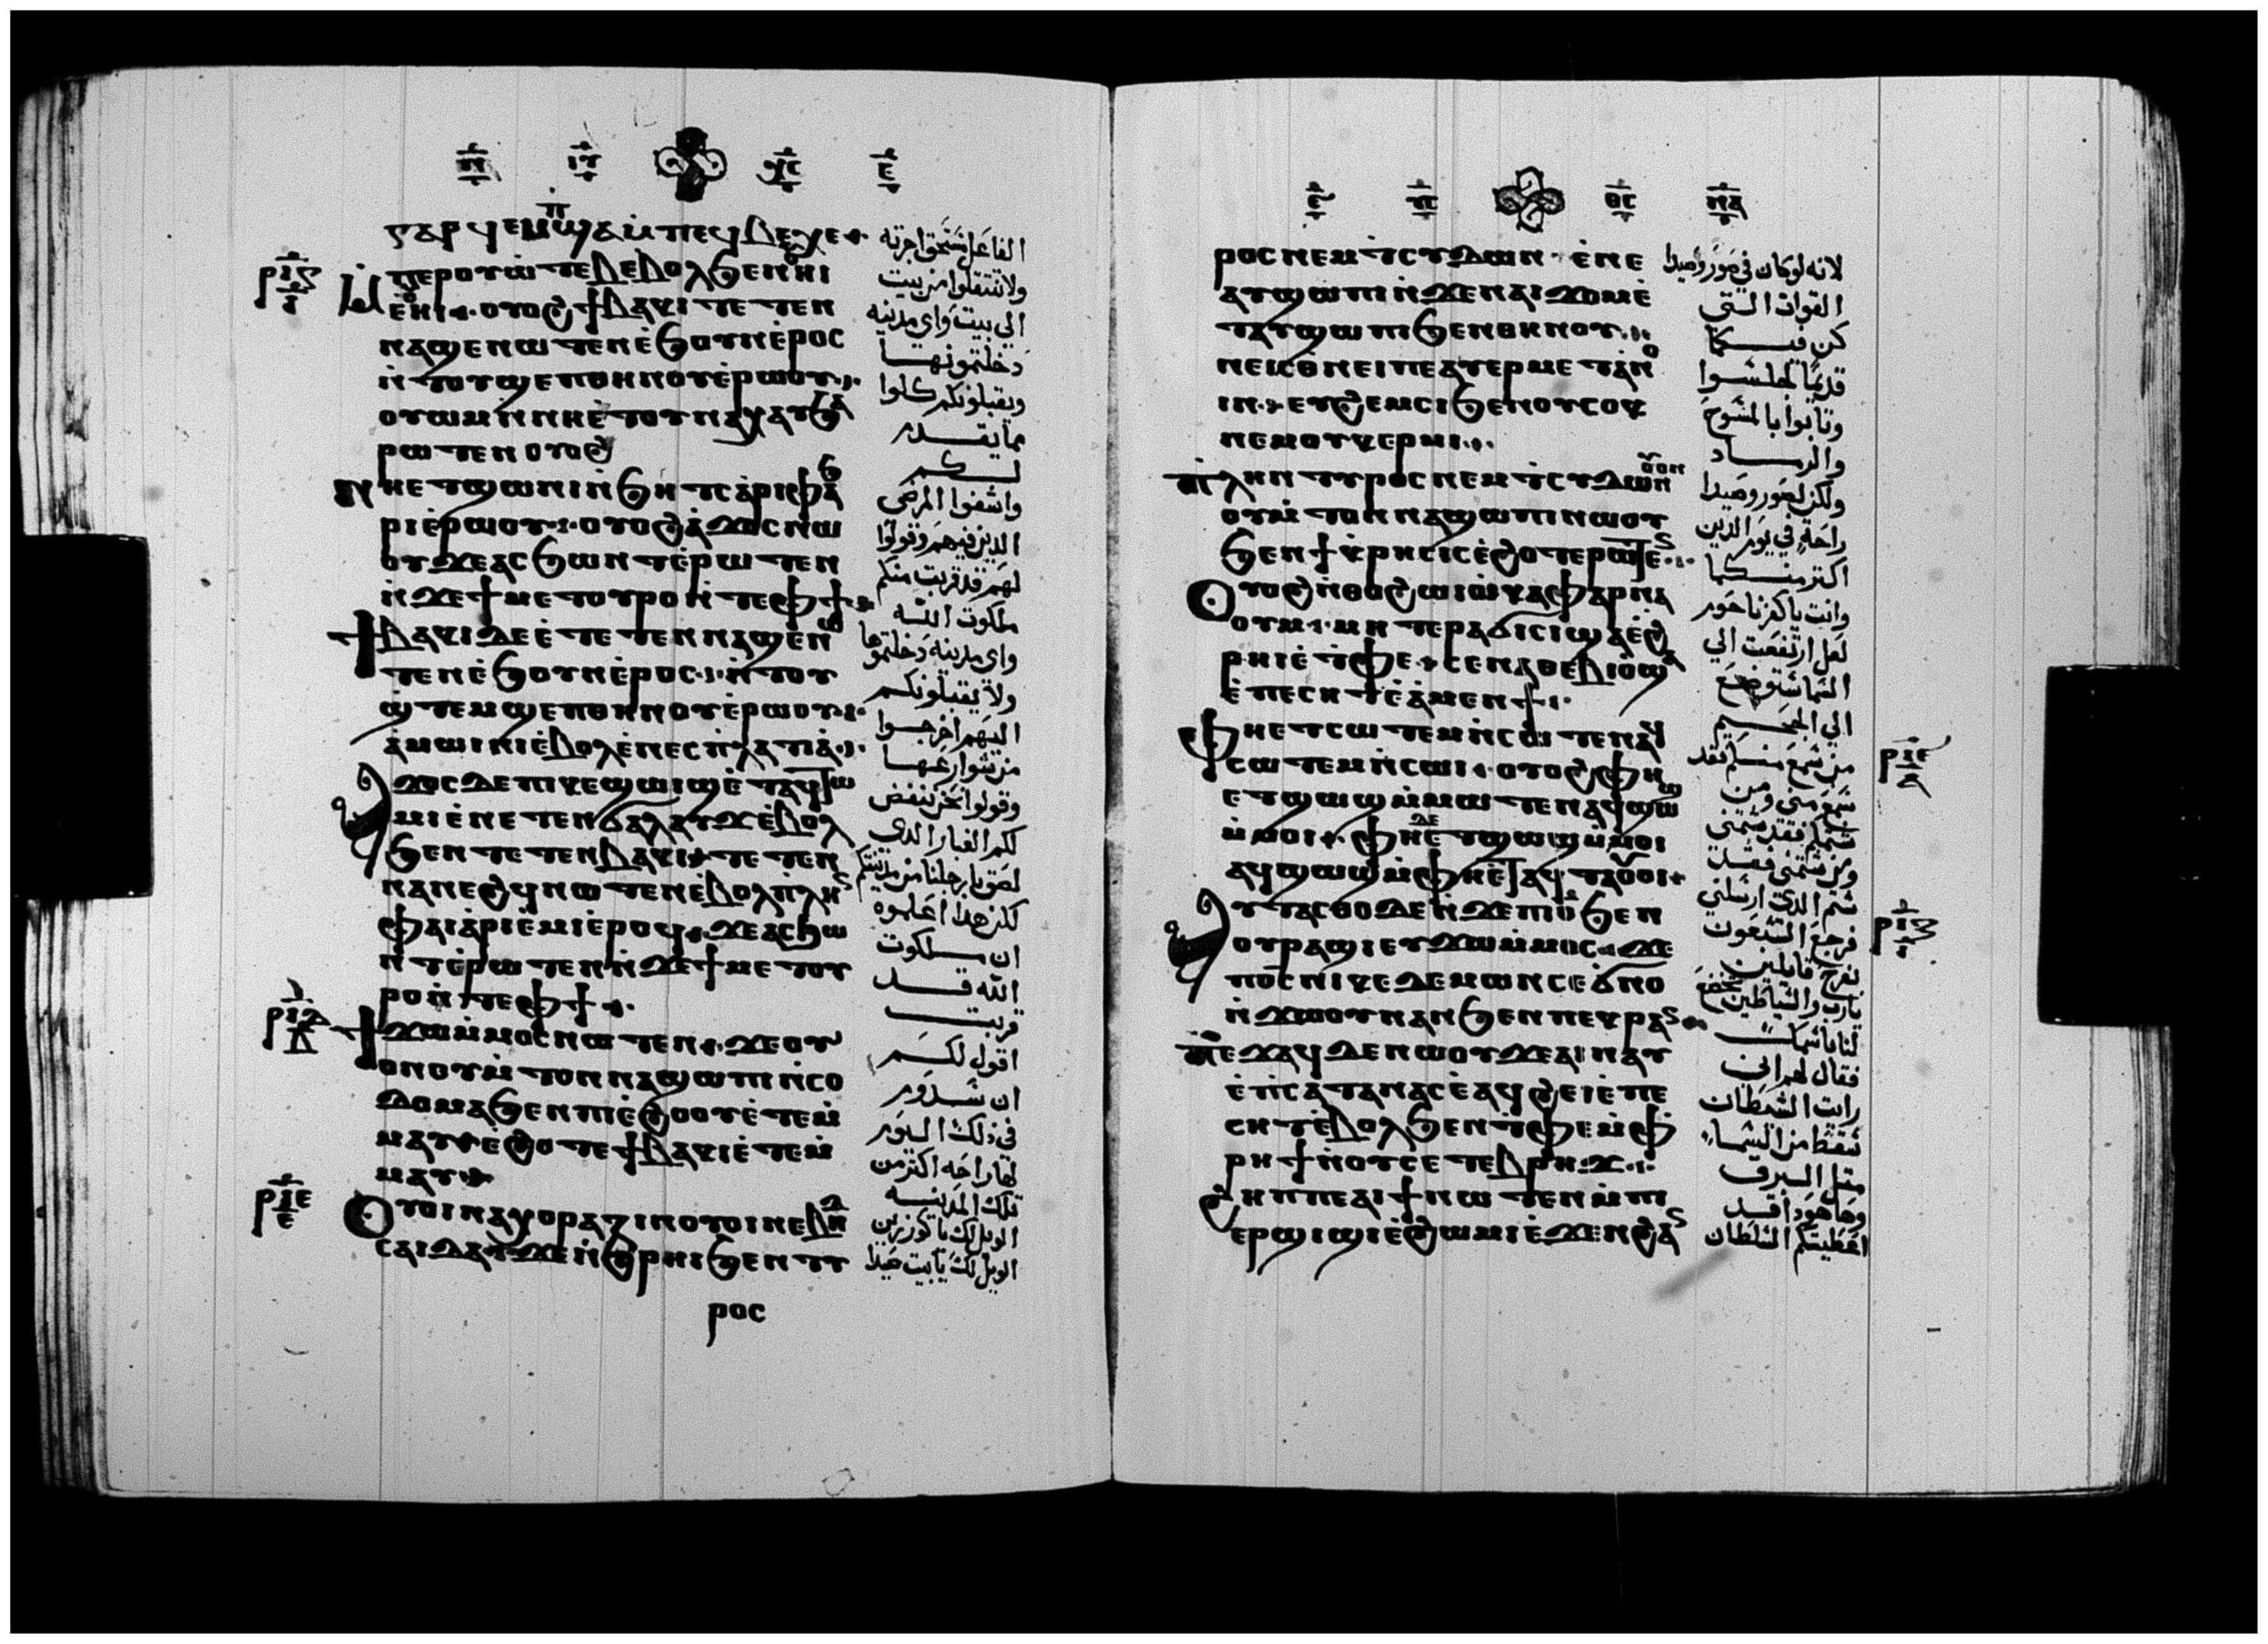 ⲅⲁⲣ ϥⲉⲙⲡϣⲁ ⲙ̀ⲡⲉϥⲃⲉⲭⲉ
ⲙ̀ⲡⲉⲣⲟⲩⲱⲧⲉⲃ ⲉⲃⲟⲗϧⲉⲛ ⲏⲓ
ⲉ̀ⲏⲓ ⲟⲩⲟϩ ϯⲃⲁⲕⲓ ⲉⲧⲉⲧⲉⲛ
ⲛⲁϣⲉⲛⲱⲧⲉⲛ ⲉ̀ϧⲟⲩⲛ ⲉ̀ⲣⲟⲥ
ⲛ̀ⲧⲟⲩϣⲉⲡ ⲑⲏⲛⲟⲩ ⲉ̀ⲣⲱⲟⲩ
ⲟⲩⲱⲙ ⲛ̀ⲛⲏ ⲉ̀ⲧⲟⲩⲛⲁⲭⲁⲩ ϧⲁ
ⲣⲱⲧⲉⲛ ⲟⲩⲟϩ
ⲛⲏ ⲉⲧϣⲱⲛⲓ ⲛ̀ϧⲏⲧⲥ ⲁ̀ⲣⲓⲫⲁϧ
ⲣⲓ ⲉ̀ⲣⲱⲟⲩ ⲟⲩⲟϩ ⲁ̀ϫⲟⲥ ⲛⲱ
ⲟⲩ ϫⲉ ⲁⲥϧⲱⲛⲧ ⲉ̀ⲣⲱⲧⲉⲛ
ⲛ̀ϫⲉ ϯⲙⲉⲧⲟⲩⲣⲟ ⲛ̀ⲧⲉ ⲫϯ
ϯⲃⲁⲕⲓ ⲇⲉ ⲉ̀ⲧⲉⲧⲉⲛⲛⲁϣⲉⲛⲱ
ⲧⲉⲛ ⲉ̀ϧⲟⲩⲛ ⲉ̀ⲣⲟⲥ ⲛ̀ⲧⲟⲩ
ϣ̀ⲧⲉⲙϣⲉⲡ ⲑⲏⲛⲟⲩ ⲉ̀ⲣⲱⲟⲩ
ⲁ̀ⲙⲱⲓⲛⲓ ⲉ̀ⲃⲟⲗ ⲉ̀ⲛⲉⲥⲡ̀ⲗⲁⲧⲓⲁ̀
ⲁϫⲟⲥ ϫⲉ ⲡⲓⲕⲉϣⲱⲓϣ ⲉ̀ⲧⲁϥⲧⲱ
ⲙⲓ ⲉ̀ⲛⲉⲧⲉⲛϭⲁⲗⲁⲩϫ ⲉ̀ⲃⲟⲗ
ϧⲉⲛ ⲧⲉⲧⲉⲛⲃⲁⲕⲓ ⲧⲉⲧⲉⲛ
ⲛⲁⲛⲉϩϥ ⲛⲱⲧⲉⲛ ⲉ̀ⲃⲟⲗ ⲡ̀ⲗⲏⲛ
ⲫⲁⲓ ⲁ̀ⲣⲓⲉ̀ⲙⲓ ⲉ̀ⲣⲟϥ ϫⲉ ⲁⲥϧⲱ
ⲛⲧ ⲉ̀ⲣⲱⲧⲉⲛ ⲛ̀ϫⲉ ϯⲙⲉⲧⲟⲩ
ⲣⲟ ⲛ̀ⲧⲉ ⲫϯ
ϯϫⲱ ⲙ̀ⲙⲟⲥ ⲛⲱⲧⲉⲛ ϫⲉ ⲟⲩ
ⲟⲛ ⲟⲩⲙ̀ⲧⲟⲛ ⲛⲁϣⲱⲡⲓ ⲛ̀ⲥⲟ
ⲇⲟⲙⲁ ϧⲉⲛ ⲡⲓⲉ̀ϩⲟⲟⲩ ⲉ̀ⲧⲉⲙ̀
ⲙⲁⲩ ⲉ̀ϩⲟⲧⲉ ϯⲃⲁⲕⲓ ⲉ̀ⲧⲉⲙ̀
ⲙⲁⲩ
ⲟⲩⲟⲓ ⲛⲁ ⲭⲟⲣⲁⲍⲓⲛ ⲟⲩⲟⲓ ⲛⲉ ⲃⲏⲑ
ⲥⲁⲓⲇⲁ ϫⲉ ⲛ̀ϩ̀ⲣⲏⲓ ϧⲉⲛ ⲧⲩ
ⲣⲟⲥ
الفاعل مستحق اجرته
ولا تنتقلوا من بيت
الي بيت واي مدينه
دخلتمونهـا
ويقبلونكم كلوا
مما يقـدم
لـكم
واشفوا المرضي
الدين فيهم وقولوا
لهم قد قربت منكم
ملكوت اللـه
واي مدينه دخلتموها
ولا يقبلونكم
اليهم اخرجـوا
من شوارعهـا
وقولوا نحن ننفض
لكم الغبار الدي
لصق بارجلنا من مدينتكم
لكن هدا اعلموه
ان ملكوت
الله قـد
قربت
اقول لكـم
ان سدوم
في ذلك اليوم
لها راحه اكتر من
تلك المدينـه
الويل لك يا كورزين
الويل لك يا بيت صيدا
ⲣⲟⲥ ⲛⲉⲙ ⲧ̀ⲥⲩⲇⲱⲛ ⲉ̀ⲛⲉ
ⲁⲩϣⲱⲡⲓ ⲛ̀ϫⲉ ⲛⲁⲓϫⲟⲙ ⲉ̀
ⲧⲁⲩϣⲱⲡⲓ ϧⲉⲛ ⲑⲏⲛⲟⲩ
ⲛⲉ ⲓⲥϫⲉⲛ ⲡⲉ ⲁⲩⲉⲣⲙⲉⲧⲁⲛⲟ
ⲓⲛ ⲉⲩϩⲉⲙⲥⲓ ϧⲉⲛ ⲟⲩⲥⲟⲕ
ⲛⲉⲙ ⲟⲩⲕⲉⲣⲙⲓ
ⲡⲗⲏⲛ ⲧⲩⲣⲟⲥ ⲛⲉⲙ ⲧ̀ⲥⲩⲇⲱⲛ ⲟⲩⲟⲛ
ⲟⲩⲙ̀ⲧⲟⲛ ⲛⲁϣⲱⲡⲓ ⲛⲱⲟⲩ
ϧⲉⲛ ϯⲕⲣⲏⲥⲓⲥ ⲉ̀ϩⲟⲧⲉⲣⲱⲧⲉⲛ
ⲟⲩⲟϩ ⲛ̀ⲑⲟ ϩⲱⲓ ⲱ̀ ⲕⲁⲫⲁⲣⲛⲁ
ⲟⲩⲙ ⲙⲏ ⲧⲉⲣⲁϭⲓⲥⲓ ϣⲁ ⲉ̀ϩ̀
ⲣⲏⲓ ⲉ̀ⲧ̀ⲫⲉ ⲥⲉⲛⲁⲑⲉⲃⲓⲟ ϣⲁ
ⲉ̀ⲡⲉⲥⲏⲧ ⲉ̀ⲁ̀ⲙⲉⲛϯ
ⲫⲏ ⲉⲧⲥⲱⲧⲉⲙ ⲛ̀ⲥⲱⲧⲉⲛ ⲁϥ
ⲥⲱⲧⲉⲙ ⲛ̀ⲥⲱⲓ ⲟⲩⲟϩ ⲫⲏ
ⲉⲧϣⲱϣ ⲙ̀ⲙⲱⲧⲉⲛ ⲁϥϣⲱϣ
ⲙ̀ⲙⲟⲓ ⲫⲏ ⲇⲉ ⲉⲧϣⲱϣ ⲙ̀ⲙⲟⲓ
ⲁϥϣⲱϣ ⲙ̀ⲫⲏ ⲉ̀ⲧⲁϥⲧⲁⲟⲩⲟⲓ
ⲁⲩⲧⲁⲥⲑⲟ ⲇⲉ ⲛ̀ϫⲉ ⲡⲓⲟ̅ ϧⲉⲛ
ⲟⲩⲣⲁϣⲓ ⲉⲩϫⲱ ⲙ̀ⲙⲟⲥ ϫⲉ
ⲡⲟ̅ⲥ̅ ⲛⲓⲕⲉⲇⲉⲙⲱⲛ ⲥⲉϭⲛⲟ
ⲛ̀ϫⲱⲟⲩ ⲛⲁⲛ ϧⲉⲛ ⲡⲉⲕⲣⲁⲛ
ⲡⲉϫⲁϥ ⲇⲉ ⲛⲱⲟⲩ ϫⲉ ⲁⲓⲛⲁⲩ
ⲉ̀ⲡ̀ⲥⲁⲧⲁⲛⲁⲥ ⲉ̀ⲁϥϩⲉⲓ ⲉ̀ⲡⲉ
ⲥⲏⲧ ⲉ̀ⲃⲟⲗϧⲉⲛ ⲧ̀ⲫⲉ ⲙ̀ⲫ̀
ⲣⲏϯ ⲛ̀ⲟⲩⲥⲉⲧⲉⲃⲣⲏϫ
ϩⲏⲡⲡⲉ ⲁⲓϯ ⲛⲱⲧⲉⲛ ⲙ̀ⲡⲓ
ⲉⲣϣⲓϣⲓ ⲉ̀ϩⲱⲙⲓ ⲉ̀ϫⲉⲛ ϩⲁⲛ
لانه لو كان في صور وصيدا
القوات التي
كن فيـكما
قديما لجلسـوا
وتابوا بالمسوح
والرمـاد
ولكن لصور وصيدا
راحة في يوم الدين
اكتر منـكما
وانت يا كفرناحوم
لعل ارتفعت الي
السما ستوضع
الي الجحـيم
من سمع منـكم فقد
سمع مني ومن
شتمكم فقد شتمني
ومن شتمني فقـد
شتم الدي ارسلني
فرجع السبعون
بفرح قايلين
يارب والشياطين تخضع
لنا باسمك
فقال لهم اني
رايت الشيطان
سقط من السما
متل البرق
وها هودا قـد
اعطيتكم السلطان